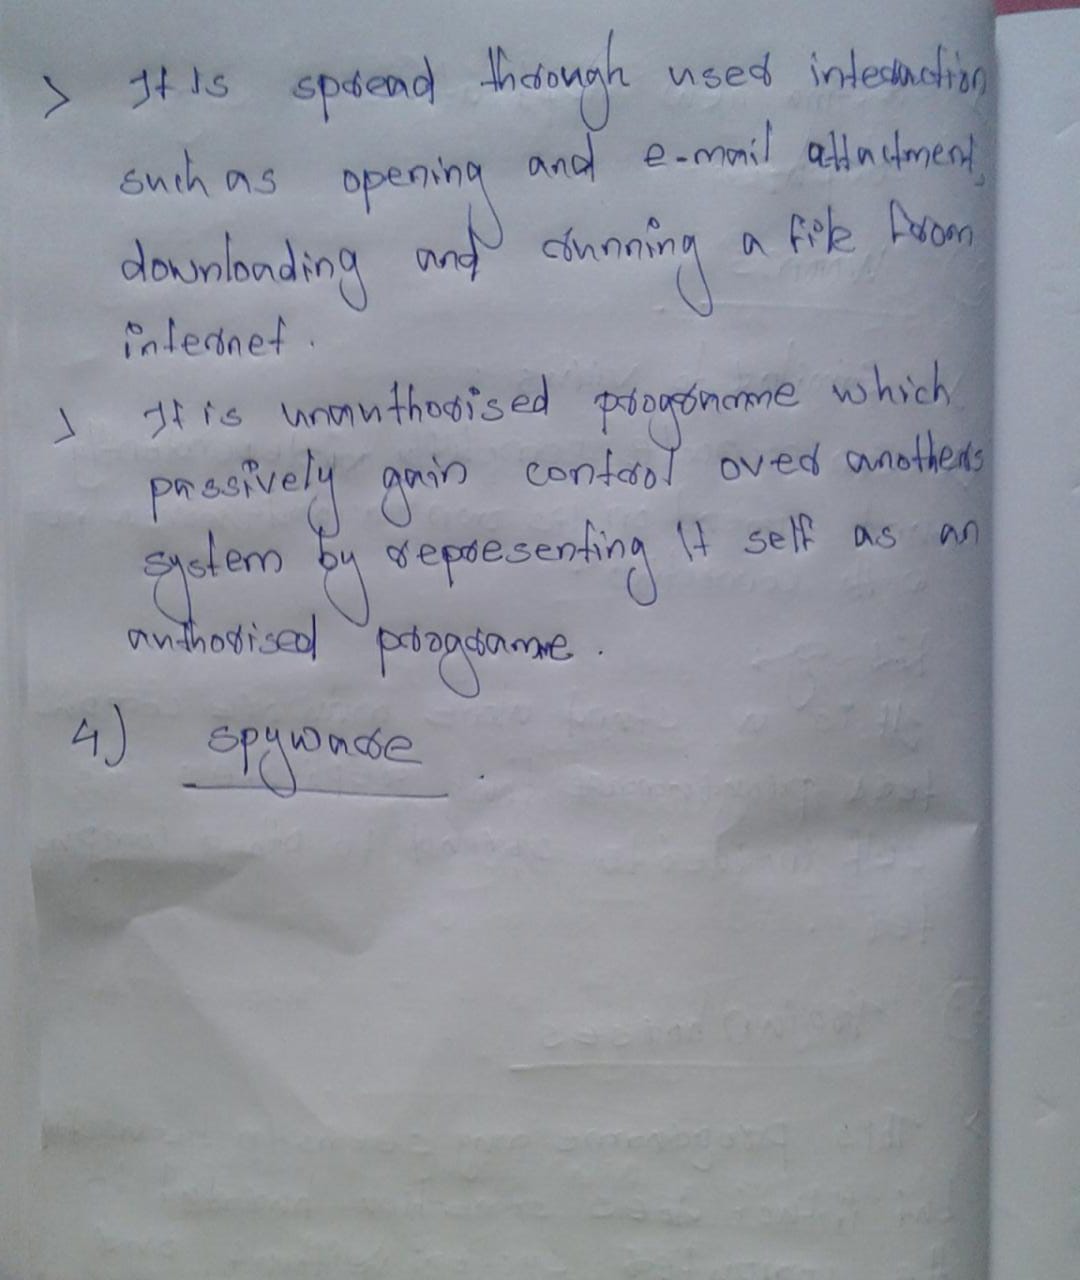 > It Is spread through user interaction
such as opening and e-mail attachment,
downloading and running a file from
internet.
> It is unauthorised programme which
passively gain control over anothers
system by representing It self as an
authorised programe.
4) spyware